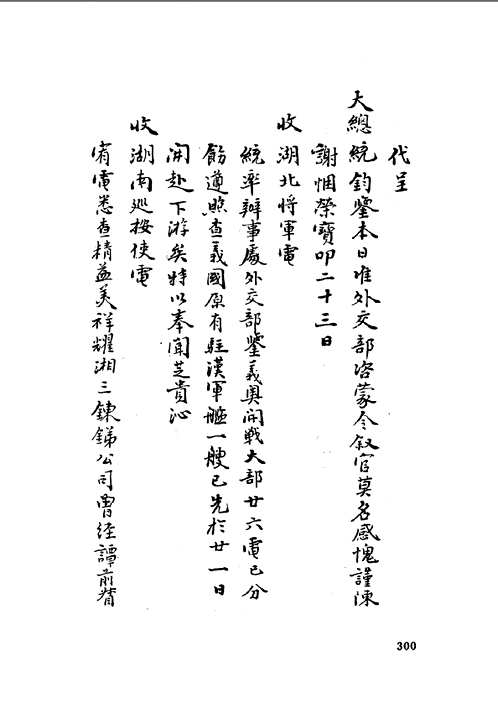 代呈
大總統鈞鑒本日准外交部咨蒙令叙官莫名感愧謹陳
謝悃榮寶叩二十三日
收湖北将軍電
統率辦事處外交部鑒義奥開戰大部廿六電已分
飭遵照查義國原有駐漢軍艦一艘已先於廿一日
開赴下游矣特以奉聞芝貴沁
收湖南巡按使電
宥電悉查精益美祥耀湘三鍊銻公司曾经譚前督
300